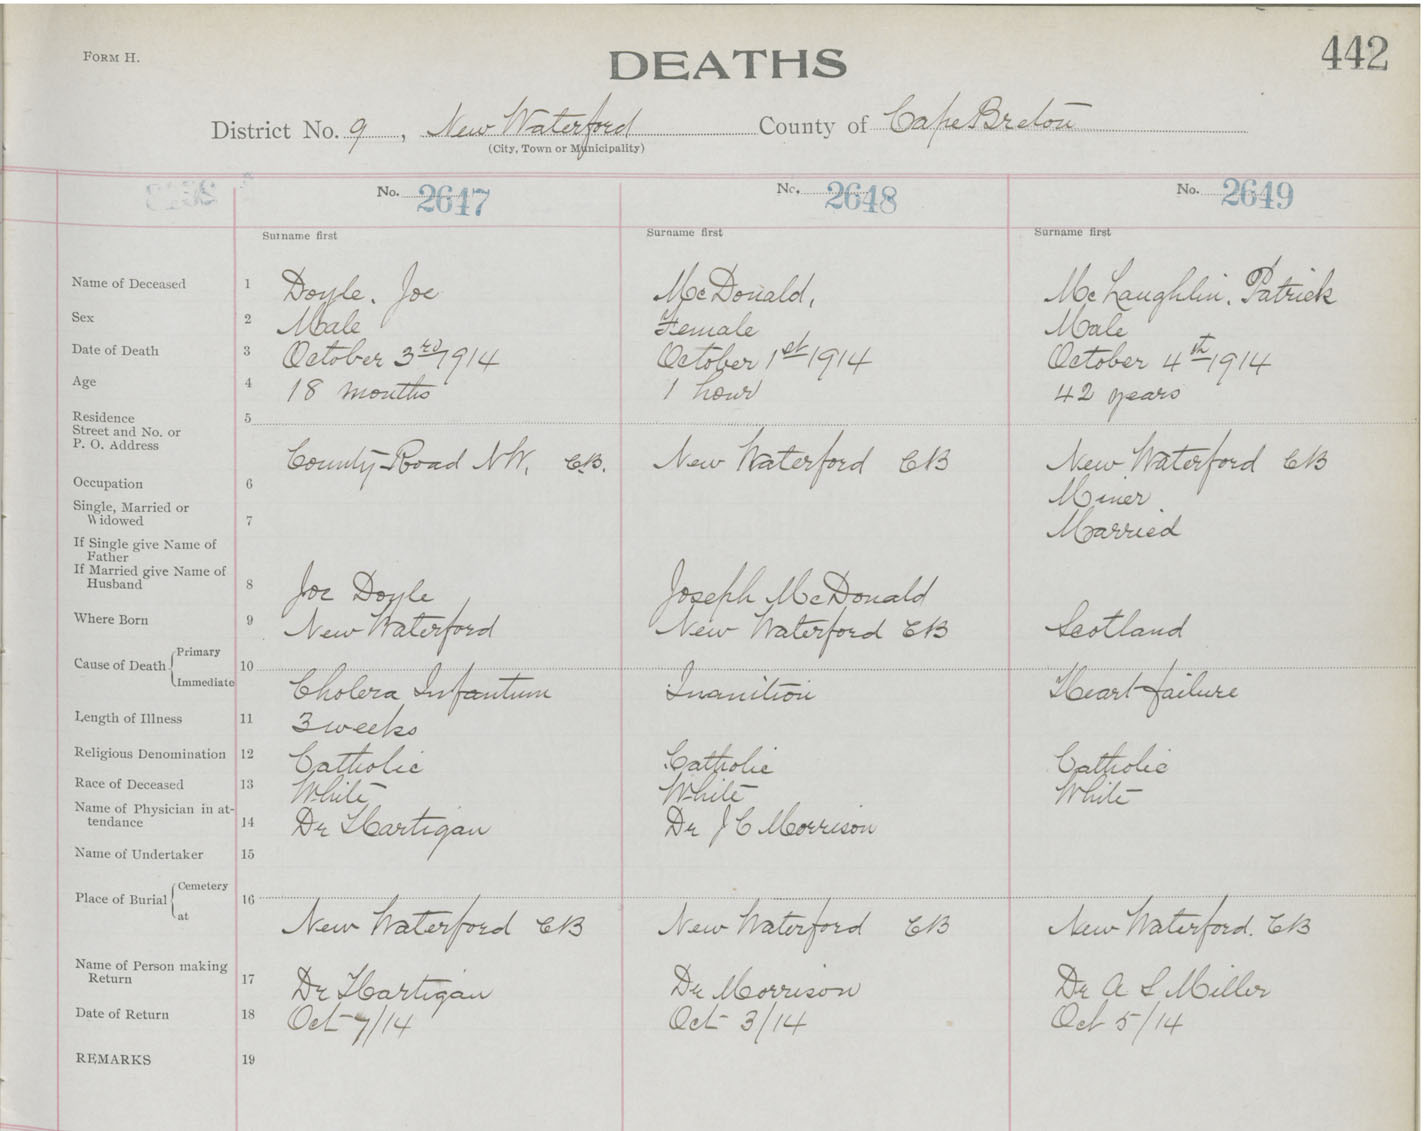 FORM H.
DEATHS
442
District No. 9, New Waterford County of Cape Breton
(City, Town or Municipality)
No. 2647 No. 2648 No. 2649
Surname first Surname first Surname first
Name of Deceased 1 Doyle, Joe McDonald, McLaughlin, Patrick
Sex 2 Male Female Male
Date of Death 3 October 3rd 1914 October 1st 1914 October 4th 1914
Age 4 18 months 1 hour 42 years
Residence 5
Street and No. or
P. O. Address
County Road NW, CB. New Waterford CB New Waterford CB
Occupation 6 Miner
Single, Married or
Widowed 7 Married
If Single give Name of
Father
If Married give Name of
Husband 8 Joe Doyle Joseph McDonald
Where Born 9 New Waterford New Waterford CB Scotland
Cause of Death Primary 10
Immediate Cholera Infantum Inanition Heart failure
Length of Illness 11 3 weeks
Religious Denomination 12 Catholic Catholic Catholic
Race of Deceased 13 White White White
Name of Physician in at-
tendance 14 Dr Hartigan Dr J C Morrison
Name of Undertaker 15
Place of Burial Cemetery 16
at New Waterford CB New Waterford CB New Waterford. CB
Name of Person making
Return 17 Dr Hartigan Dr Morrison Dr A S Miller
Date of Return 18 Oct 7/14 Oct 3/14 Oct 5/14
REMARKS 19